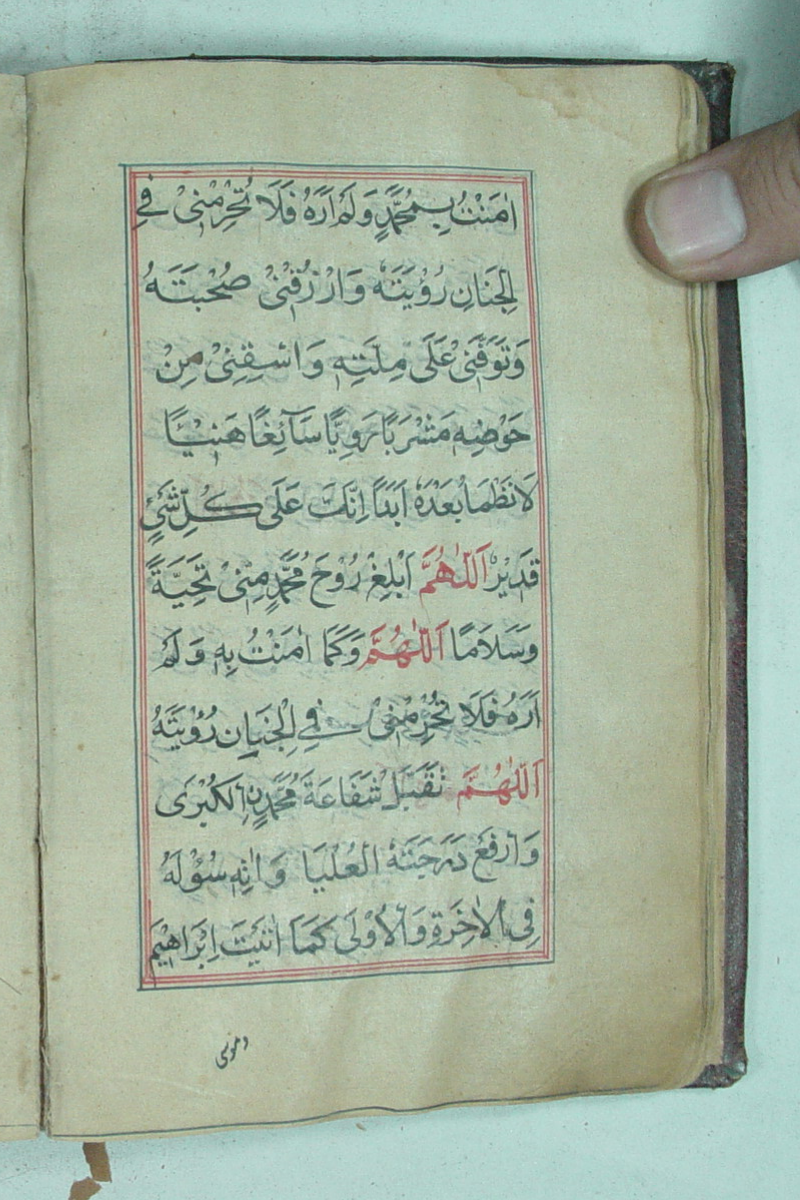 اٰمَنْتُ بِمُحَمَّدٍ وَلَمْ اَرَهُ فَلَا تُحْرِمْنِيْ فِي
الْجِنَانِ رُؤْيَتَهُ وَارْزُقْنِيْ صُحْبَتَهُ
وَتَوَفَّنِيْ عَلَى مِلَّتِهٖ وَاسْقِنِيْ مِنْ
حَوْضِهٖ مَشْرَبًا رَوِيًّا سَآئِغًا هَنِيْـًٔا
لَا نَظْمَأُ بَعْدَهُ اَبَدًا اِنَّكَ عَلَى كُلِّ شَيْءٍ
قَدِيْرٌ اَللّٰهُمَّ اَبْلِغْ رُوْحَ مُحَمَّدٍ مِنِّيْ تَحِيَّةً
وَسَلَامًا اَللّٰهُمَّ وَكَمَا اٰمَنْتُ بِهٖ وَلَمْ
اَرَهُ فَلَا تُحْرِمْنِيْ فِي الْجِنَانِ رُؤْيَتَهُ
اَللّٰهُمَّ تَقَبَّلْ شَفَاعَةَ مُحَمَّدٍ نِ الْكُبْرَى
وَارْفَعْ دَرَجَتَهُ الْعُلْيَا وَاٰتِهٖ سُؤْلَهُ
فِي الْاٰخِرَةِ وَالْاُوْلَى كَمَا اٰتَيْتَ اِبْرَاهِيْمَ
وموسى